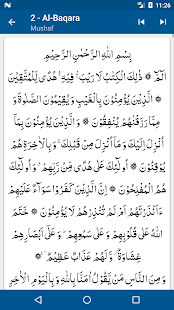 11:26
2 - Al-Baqara
Mushaf
بِسْمِ اللهِ الرَّحْمٰنِ الرَّحِيْمِ
الٓمّٓ ۞ ذٰلِكَ الْكِتٰبُ لَا رَيْبَ ۛ فِيْهِ ۛ هُدًى لِّلْمُتَّقِيْنَ
۞ الَّذِيْنَ يُؤْمِنُوْنَ بِالْغَيْبِ وَيُقِيْمُوْنَ الصَّلٰوةَ
وَمِمَّا رَزَقْنٰهُمْ يُنْفِقُوْنَ ۞ وَالَّذِيْنَ يُؤْمِنُوْنَ بِمَآ
اُنْزِلَ اِلَيْكَ وَمَآ اُنْزِلَ مِنْ قَبْلِكَ ۚ وَبِالْاٰخِرَةِ هُمْ
يُوْقِنُوْنَ ۞ اُولٰٓئِكَ عَلٰى هُدًى مِّنْ رَّبِّهِمْ ۙ وَاُولٰٓئِكَ
هُمُ الْمُفْلِحُوْنَ ۞ اِنَّ الَّذِيْنَ كَفَرُوْا سَوَآءٌ عَلَيْهِمْ
ءَاَنْذَرْتَهُمْ اَمْ لَمْ تُنْذِرْهُمْ لَا يُؤْمِنُوْنَ ۞ خَتَمَ
اللهُ عَلٰى قُلُوْبِهِمْ وَعَلٰى سَمْعِهِمْ ؕ وَعَلٰٓى اَبْصَارِهِمْ
غِشَاوَةٌ ؗ وَّلَهُمْ عَذَابٌ عَظِيْمٌ ۞
وَمِنَ النَّاسِ مَنْ يَّقُوْلُ اٰمَنَّا بِاللهِ وَبِالْيَوْمِ الْاٰخِرِ